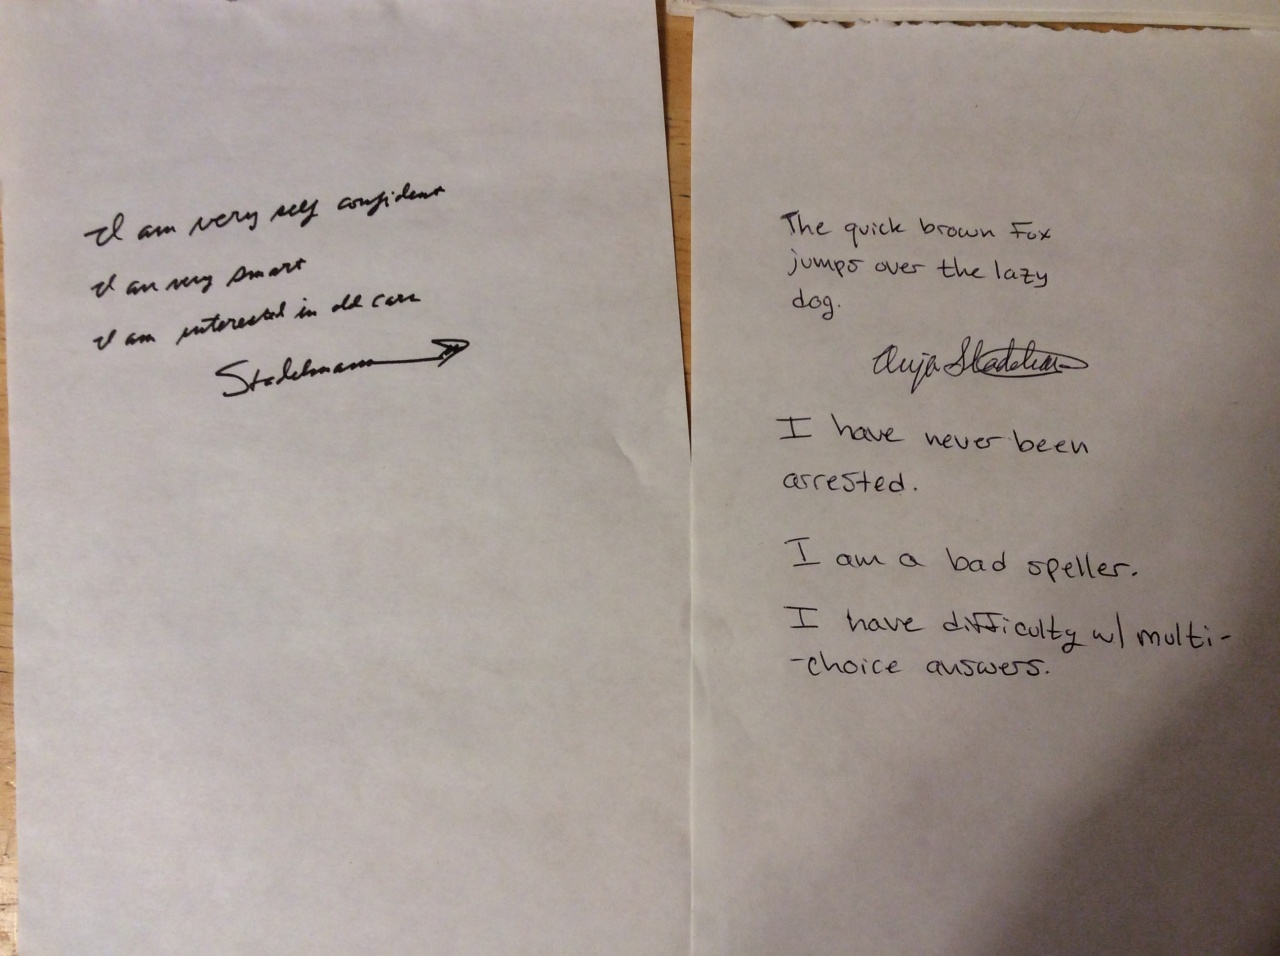 I am very self confident
I am very smart
I am interested in old cars
Stadelmann
The quick brown Fox
jumps over the lazy
dog.
Anja Stadelman
I have never been
arrested.
I am a bad speller.
I have difficulty w/ multi-
-choice answers.